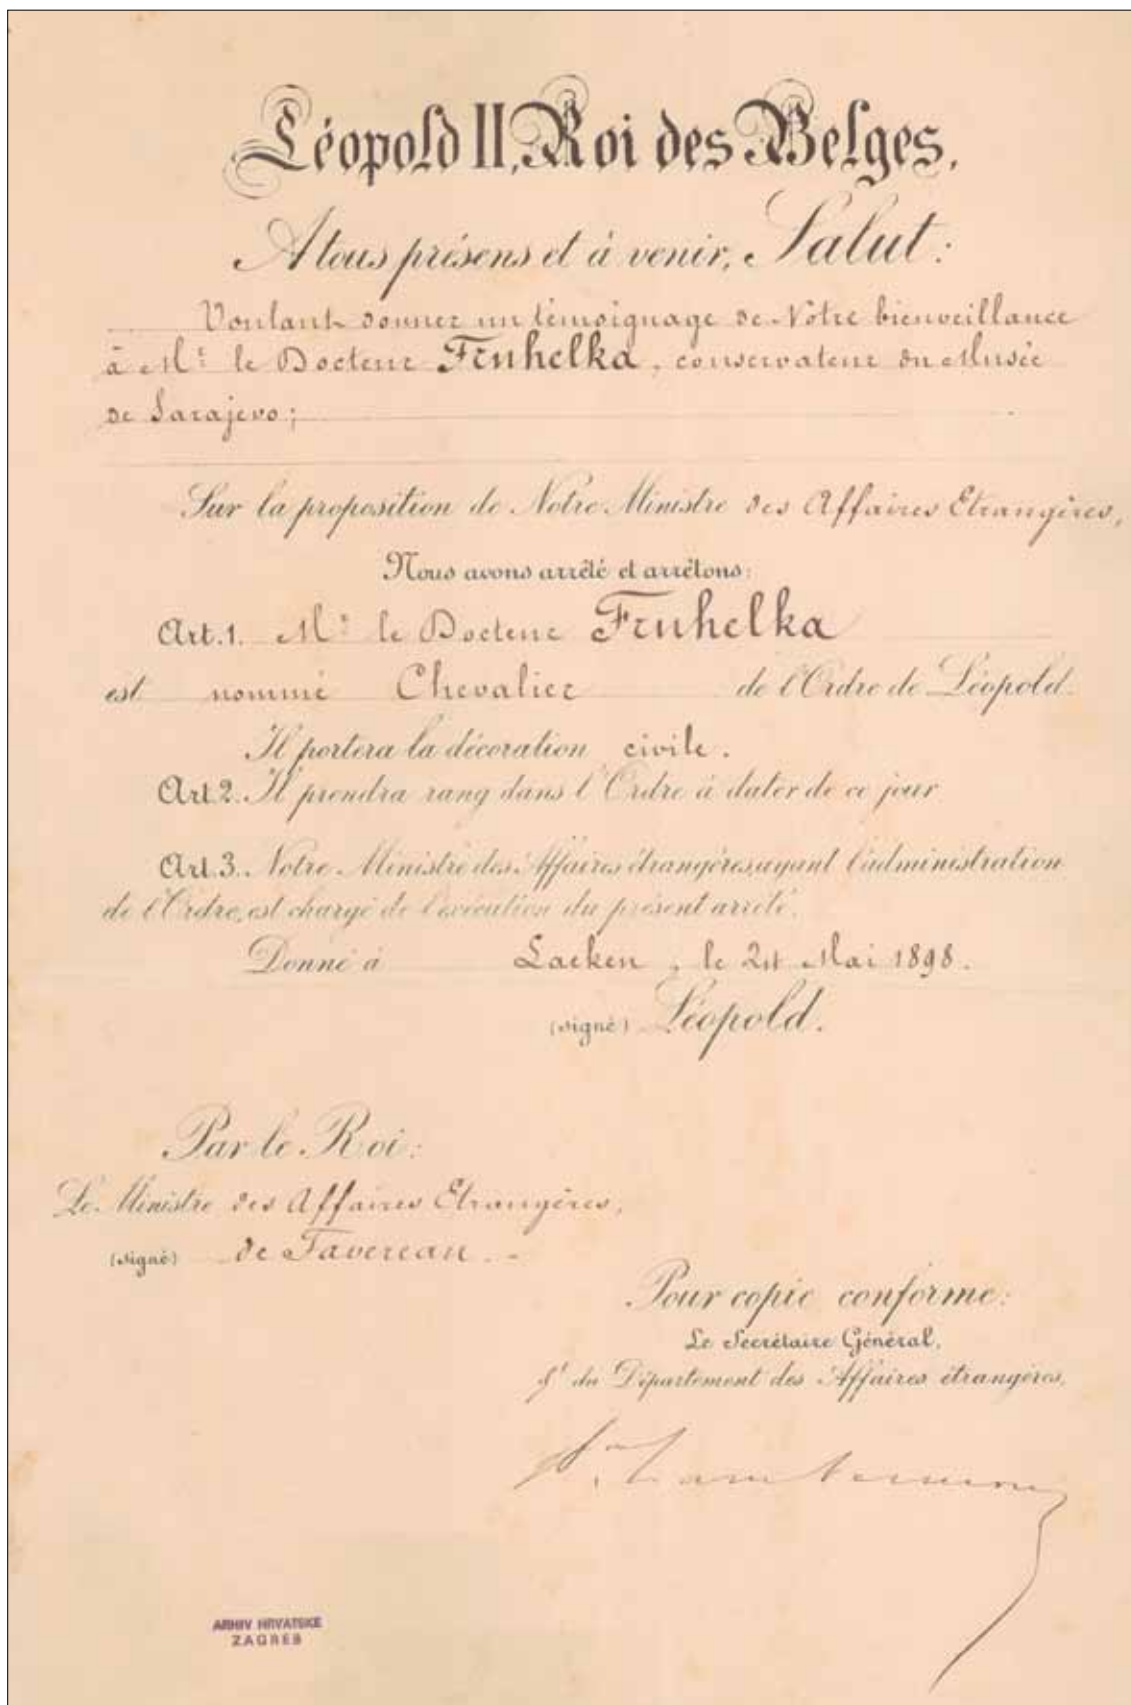 Léopold II, Roi des Belges,
A tous présens et à venir, Salut:
Voulant donner un témoignage de Notre bienveillance
à Mr le Docteur Fruhelka, conservateur du Musée
de Sarajevo;
Sur la proposition de Notre Ministre des Affaires Etrangères,
Nous avons arrêté et arrêtons:
Art. 1. Mr le Docteur Fruhelka
est nommé Chevalier de l'Ordre de Léopold.
Il portera la décoration civile.
Art 2. Il prendra rang dans l'Ordre à dater de ce jour
Art. 3. Notre Ministre des Affaires étrangères, ayant l'administration
de l'Ordre, est chargé de l'exécution du présent arrêté.
Donné à Laeken, le Mai 1898.
(signé) Léopold.
Par le Roi:
Le Ministre des Affaires Etrangères,
(signé) de Favereau.
Pour copie conforme:
Le Secrétaire Général,
du Département des Affaires étrangères,
Lambermont
ARHIV HRVATSKE
ZAGREB